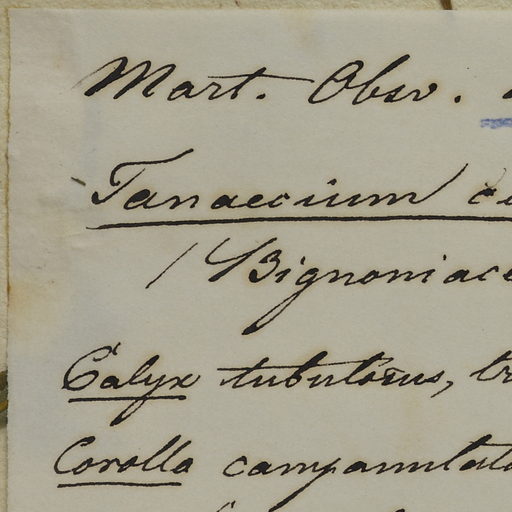 Mart. Obsv.
Tanaecium
(Bignoniace
Calyx tubulosus, tr
Corolla campanulat